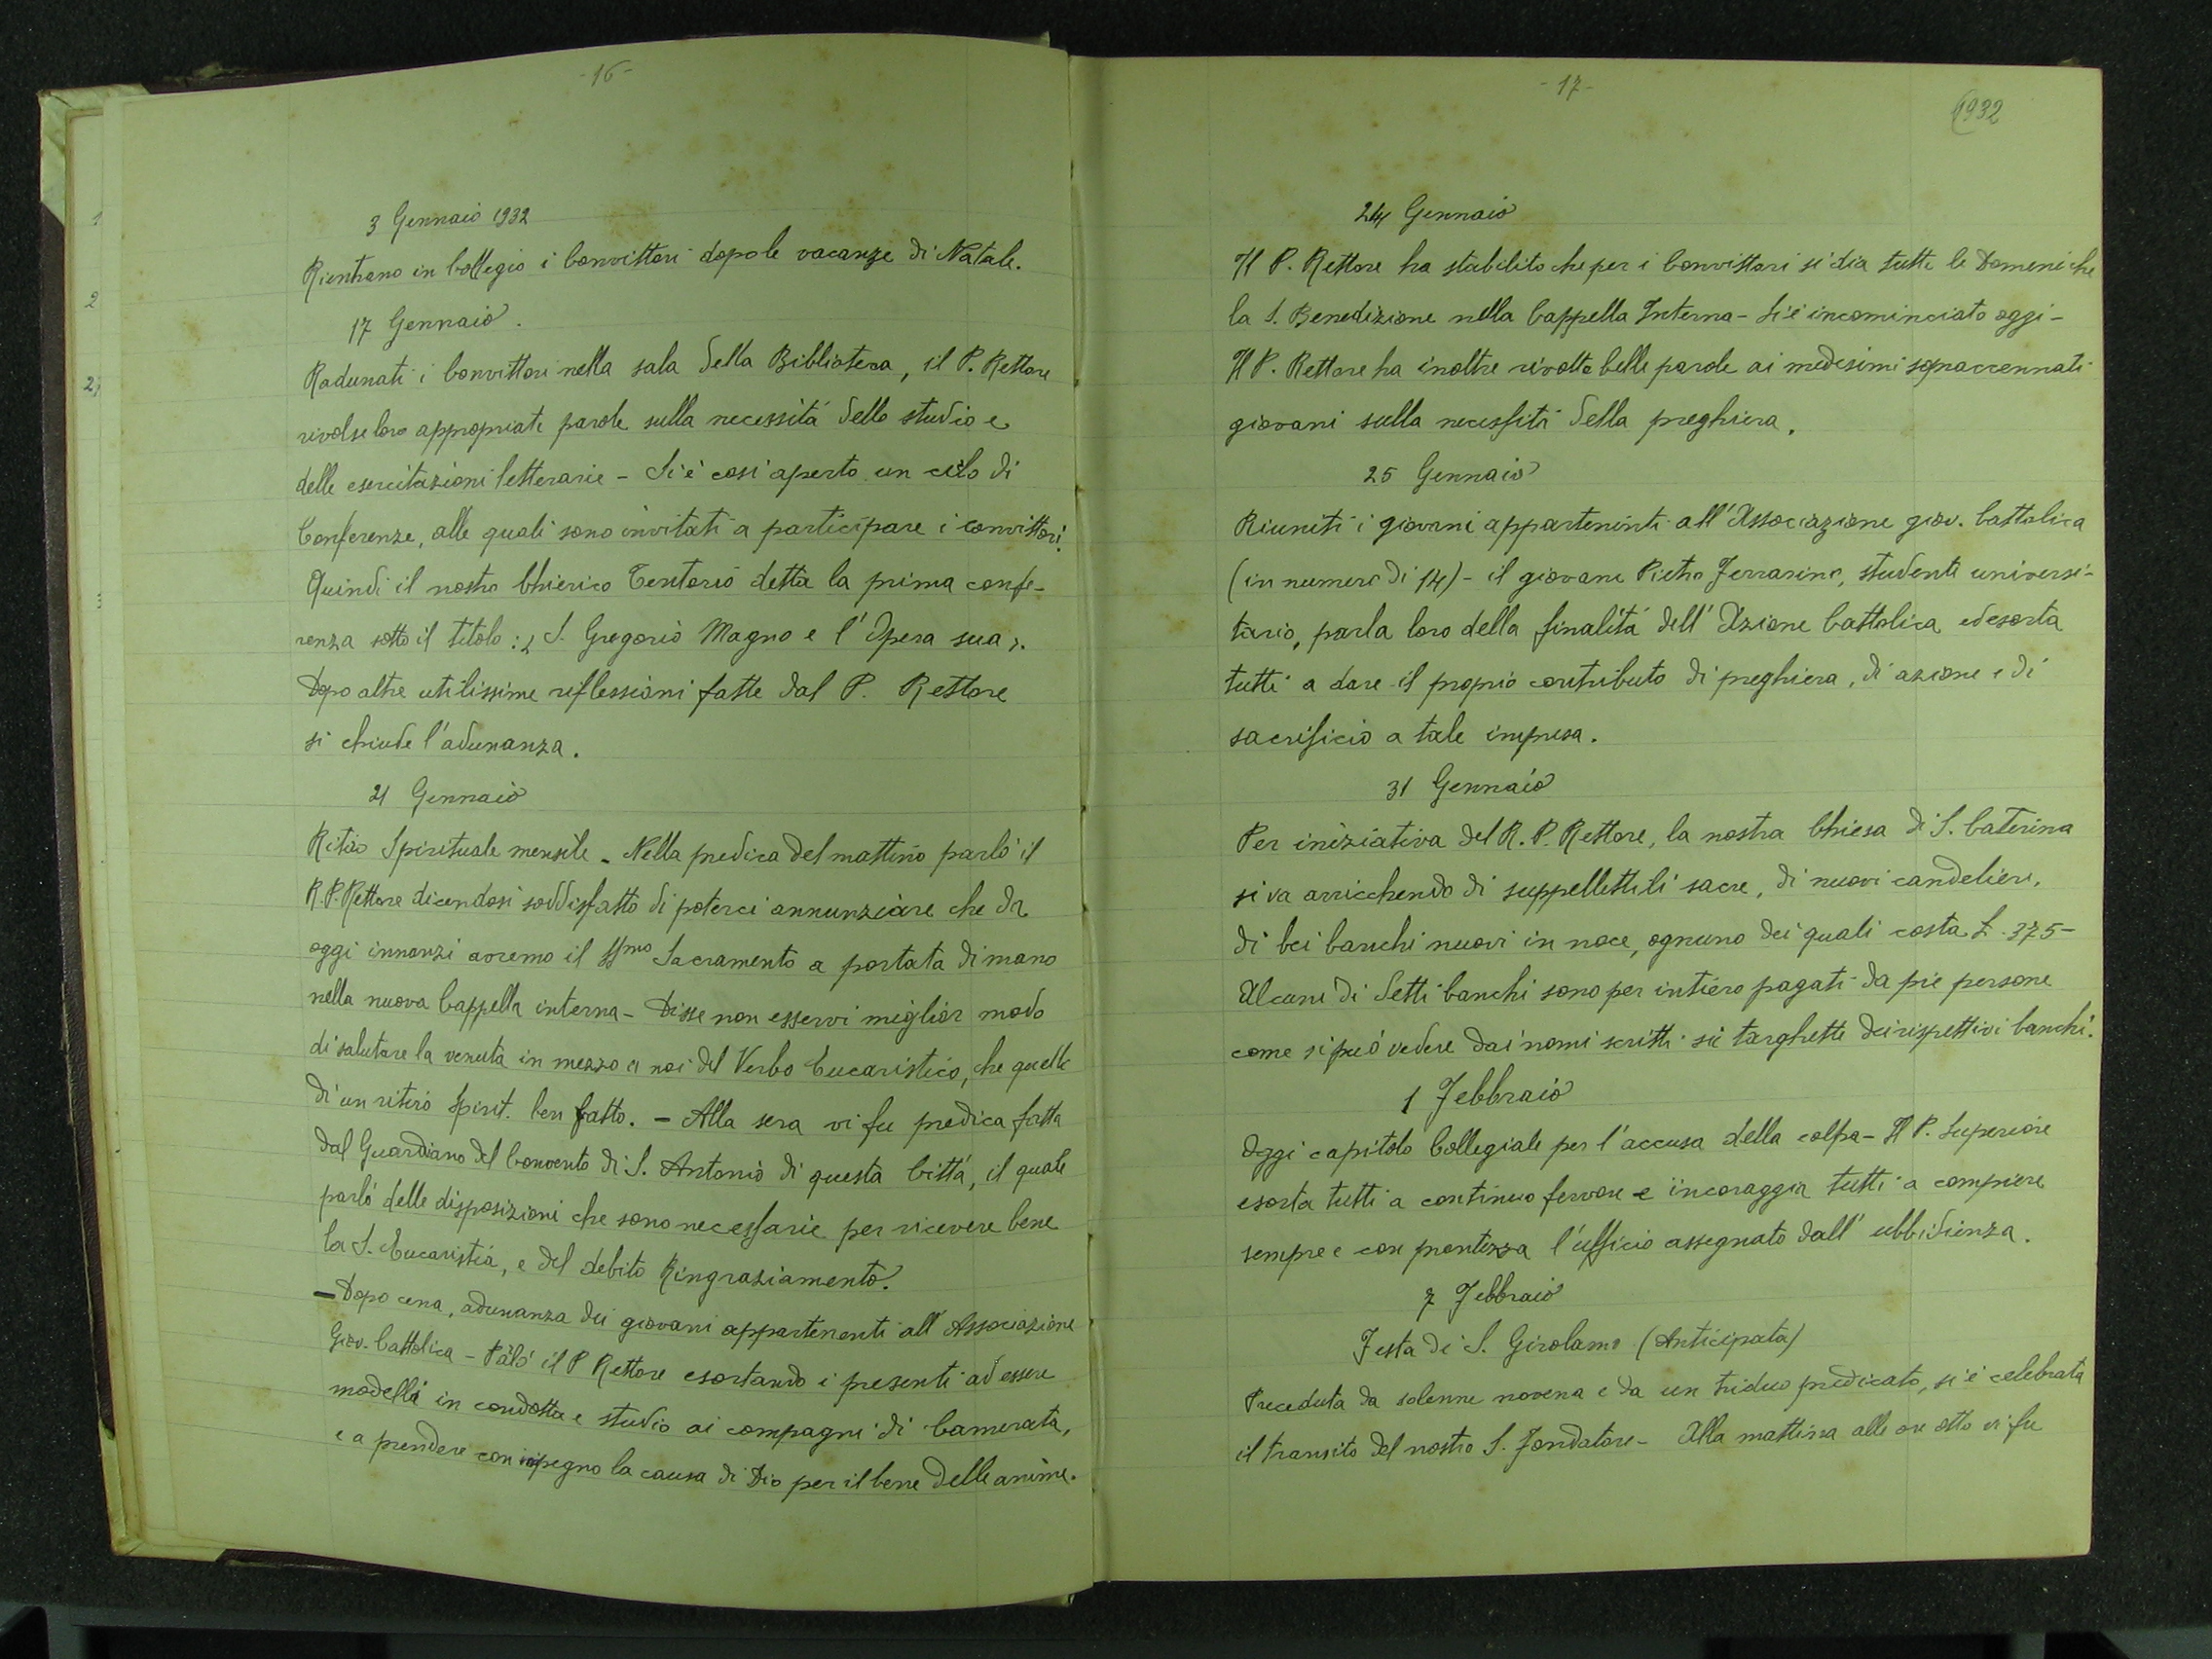 -16-
3 Gennaio 1932
Rientrano in Collegio i Convittori dopo le vacanze di Natale.
17 Gennaio.
Radunati i Convittori nella sala della Biblioteca, il P. Rettore
rivolse loro appropriate parole sulla necessità dello studio e
delle esercitazioni letterarie - Si è così aperto un ciclo di
Conferenze, alle quali sono invitati a participare i convittori.
Quindi il nostro Chierico Tentorio detta la prima confe-
renza sotto il titolo: « S. Gregorio Magno e l'Opera sua ».
Dopo altre utilissime riflessioni fatte dal P. Rettore
si chiude l'adunanza.
21 Gennaio
Ritiro Spirituale mensile - Nella predica del mattino parlò il
R. P. Rettore dicendosi soddisfatto di poterci annunziare che da
oggi innanzi avremo il SSmo Sacramento a portata di mano
nella nuova Cappella interna - Disse non esservi miglior modo
di salutare la venuta in mezzo a noi del Verbo Eucaristico, che quello
di un ritiro spirit. ben fatto. - Alla sera vi fu predica fatta
dal Guardiano del Convento di S. Antonio di questa Città, il quale
parlò delle disposizioni che sono necessarie per ricevere bene
la S. Eucaristia, e del debito Ringraziamento.
- Dopo cena, adunanza dei giovani appartenenti all'Associazione
Giov. Cattolica - Parlò il P Rettore esortando i presenti ad essere
modelli in condotta e studio ai compagni di Camerata,
e a prendere con impegno la causa di Dio per il bene delle anime.
-17-
1932
24 Gennaio
Il P. Rettore ha stabilito che per i Convittori si dia tutte le Domeniche
la S. Benedizione nella Cappella Interna - Si è incominciato oggi -
Il P. Rettore ha inoltre rivolto belle parole ai medesimi sopraccennati
giovani sulla necessità della preghiera.
25 Gennaio
Riuniti i giovani appartenenti all'Associazione giov. Cattolica
(in numero di 14) - il giovane Pietro Ferrarino, studente universi-
tario, parla loro della finalità dell'Azione Cattolica ed esorta
tutti a dare il proprio contributo di preghiera, di azione e di
sacrificio a tale impresa.
31 Gennaio
Per iniziativa del R. P. Rettore, la nostra Chiesa di S. Caterina
si va arricchendo di suppellettili sacre, di nuovi candelieri,
di bei banchi nuovi in noce, ognuno dei quali costa £. 375 -
Alcuni di detti banchi sono per intiero pagati da pie persone
come si può vedere dai nomi scritti su targhette dei rispettivi banchi.
1 Febbraio
Oggi capitolo Collegiale per l'accusa della colpa - Il P. Superiore
esorta tutti a continuo fervore e incoraggia tutti a compiere
sempre e con prontezza l'ufficio assegnato dall'ubbidienza.
7 Febbraio
Festa di S. Girolamo (Anticipata)
Preceduta da solenne novena e da un triduo predicato, si è celebrata
il transito del nostro S. Fondatore - Alla mattina alle ore otto vi fu